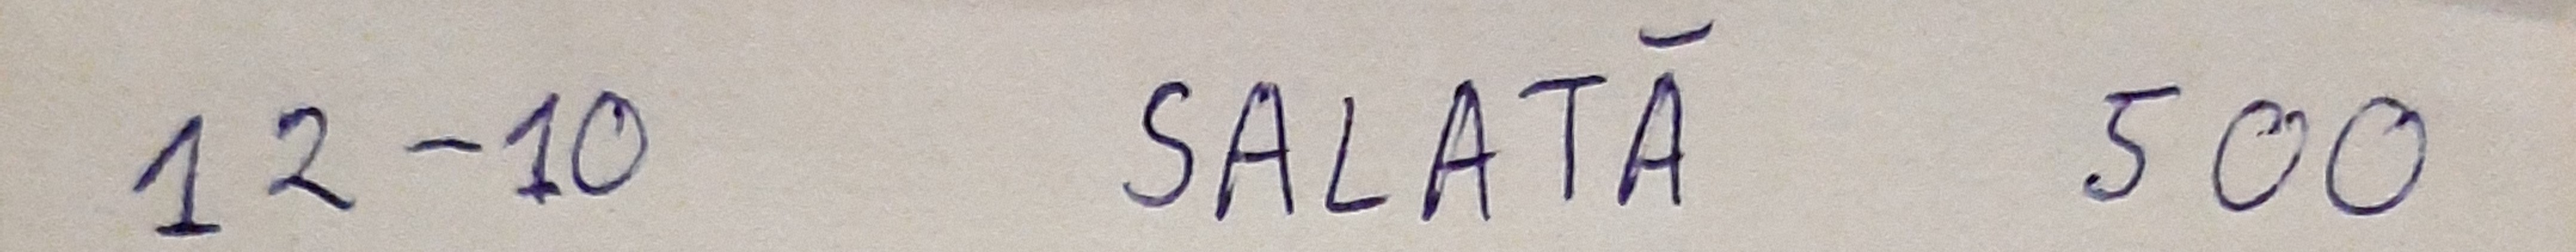 12-10 SALATĂ 500